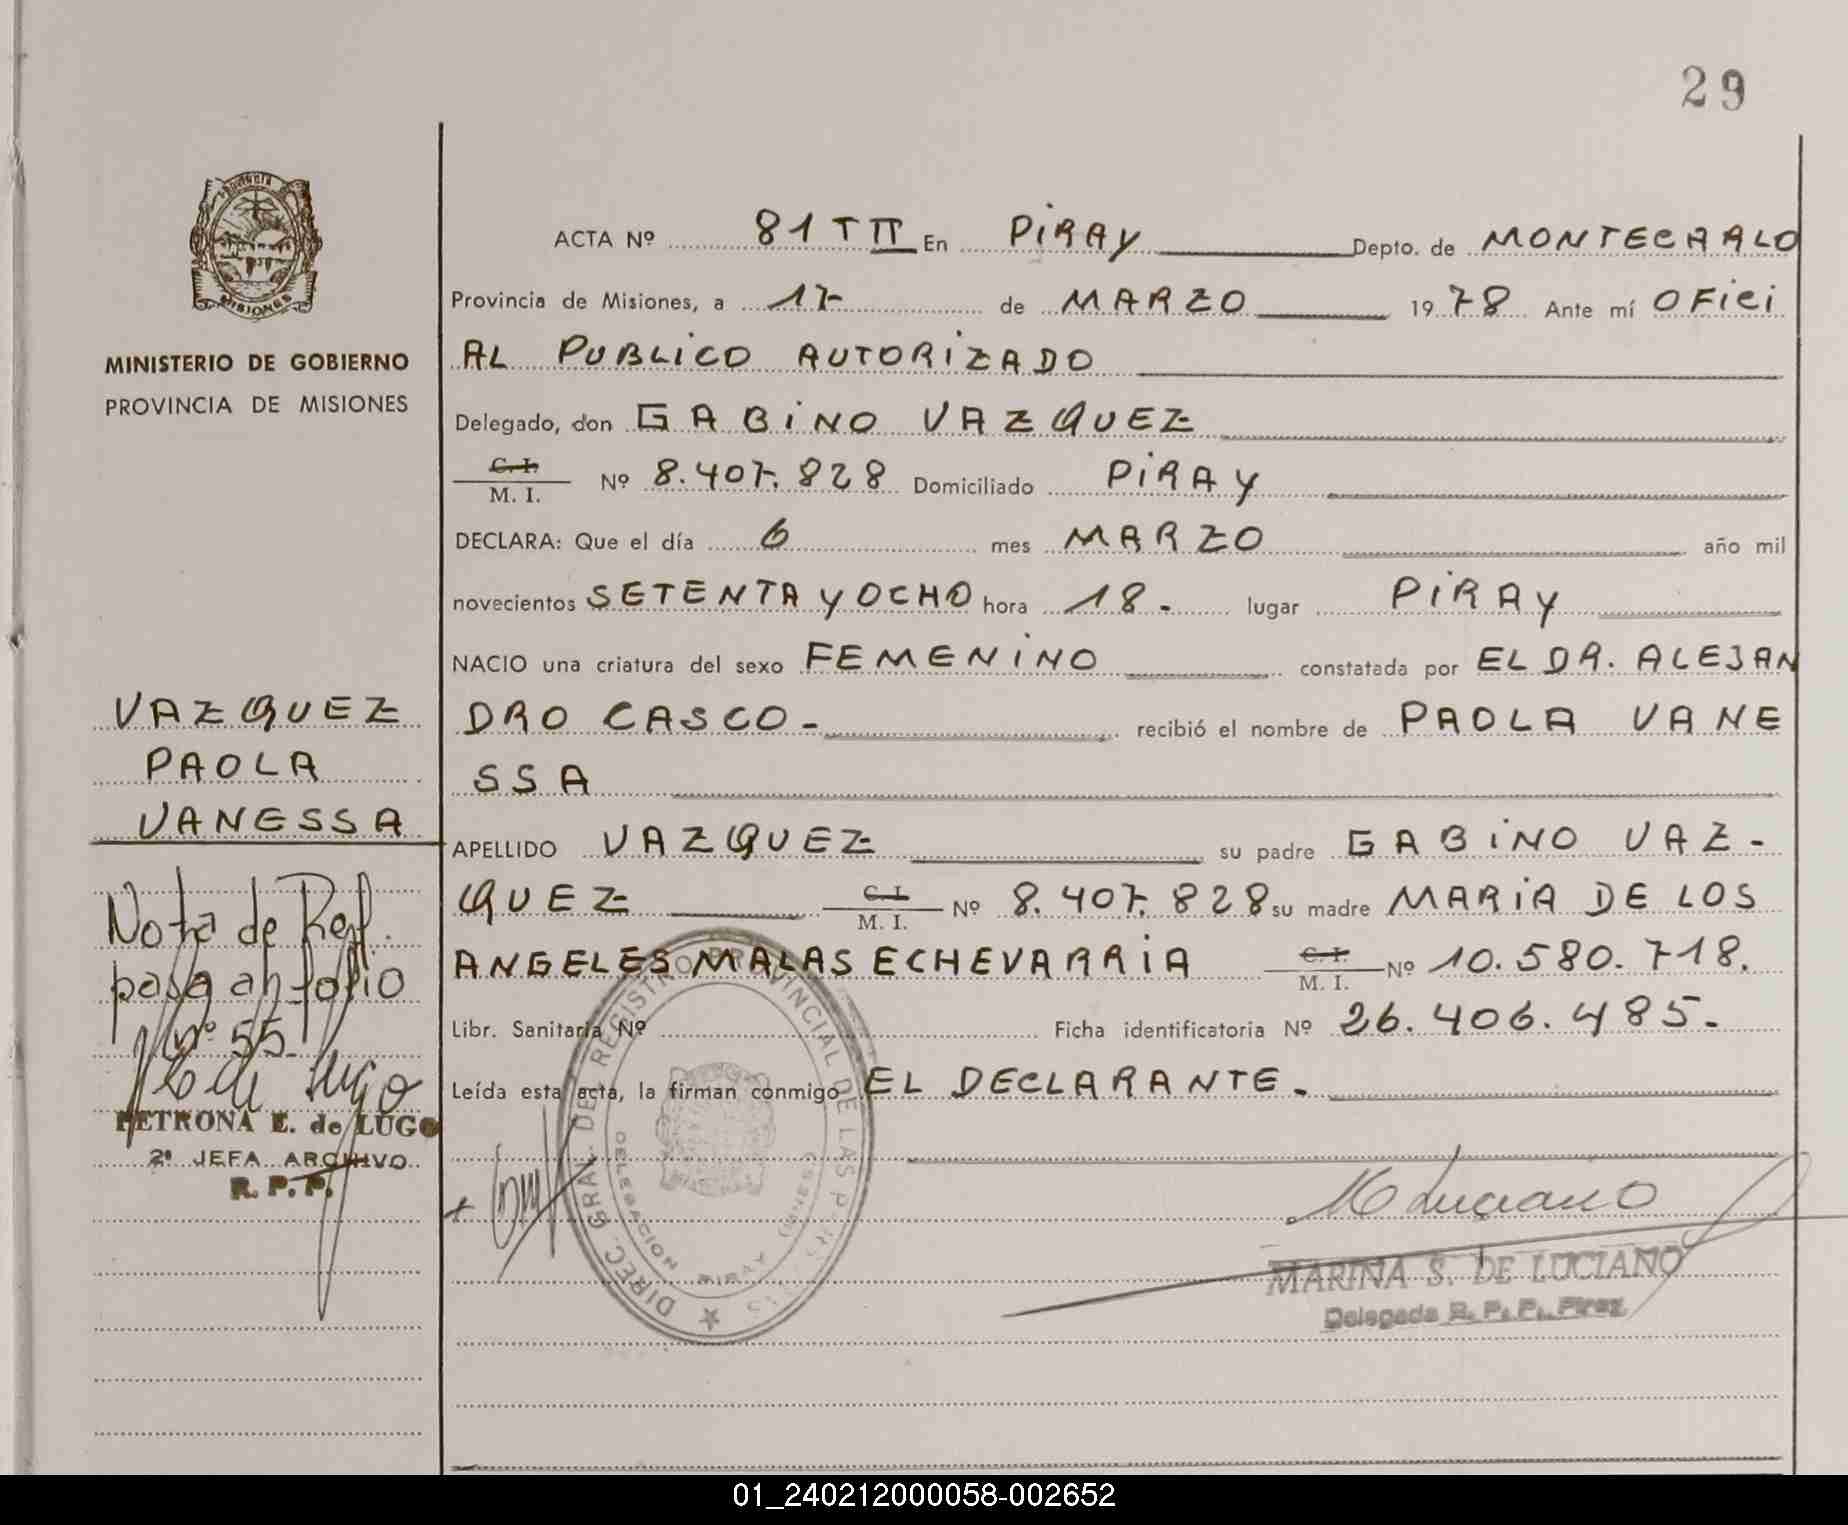 29
Provincia
MISIONES
MINISTERIO DE GOBIERNO
PROVINCIA DE MISIONES
VAZQUEZ
PAOLA
VANESSA
Nota de Ref.
pasa an folio
nº 55
PETRONA E. de LUGO
2ª JEFA ARCHIVO
R. P. P.
ACTA Nº 81 T II En PiRAY Depto. de MONTECARLO
Provincia de Misiones, a 17 de MARZO 1978 Ante mí OFICI
AL PUBLICO AUTORIZADO
Delegado, don GABINO VAZQUEZ
C. I.
M. I. Nº 8.407.828 Domiciliado PiRAY
DECLARA: Que el día 6 mes MARZO año mil
novecientos SETENTA Y OCHO hora 18. lugar PiRAY
NACIO una criatura del sexo FEMENINO constatada por EL DR. ALEJAN
DRO CASCO - recibió el nombre de PAOLA VANE
SSA
APELLIDO VAZQUEZ su padre GABINO VAZ-
QUEZ C. I.
M. I. Nº 8.407.828 su madre MARIA DE LOS
ANGELES MALAS ECHEVARRIA C. I.
M. I. Nº 10.580.718.
Libr. Sanitaria Nº Ficha identificatoria Nº 26.406.485.
Leída esta acta, la firman conmigo EL DECLARANTE.
DIREC. GRAL. DEL REGISTRO PROVINCIAL DE LAS PERSONAS
DELEGACION PIRAY (MNES)
M Luciano
MARINA S. DE LUCIANO
Delegada R. P. P. Piray
01_240212000058-002652